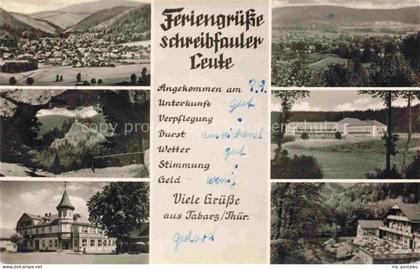 Feriengrüße
schreibfauler
Leute
Angekommen am 7.9.
Unterkunft gut
Verpflegung "
Durst ausreichend
Wetter gut
Stimmung "
Geld - wenig
Viele Grüße
aus Tabarz/Thür.